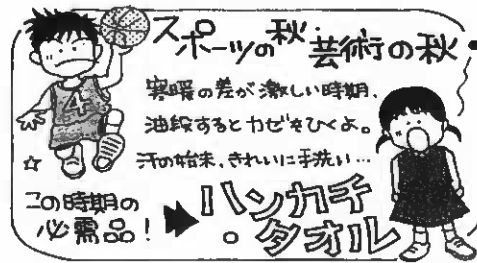 スポーツの秋・芸術の秋・
寒暖の差が激しい時期、
油段するとカゼをひくよ。
汗の始末、きれいに手洗い…
この時期の
必需品!
ハンカチ
・タオル
4